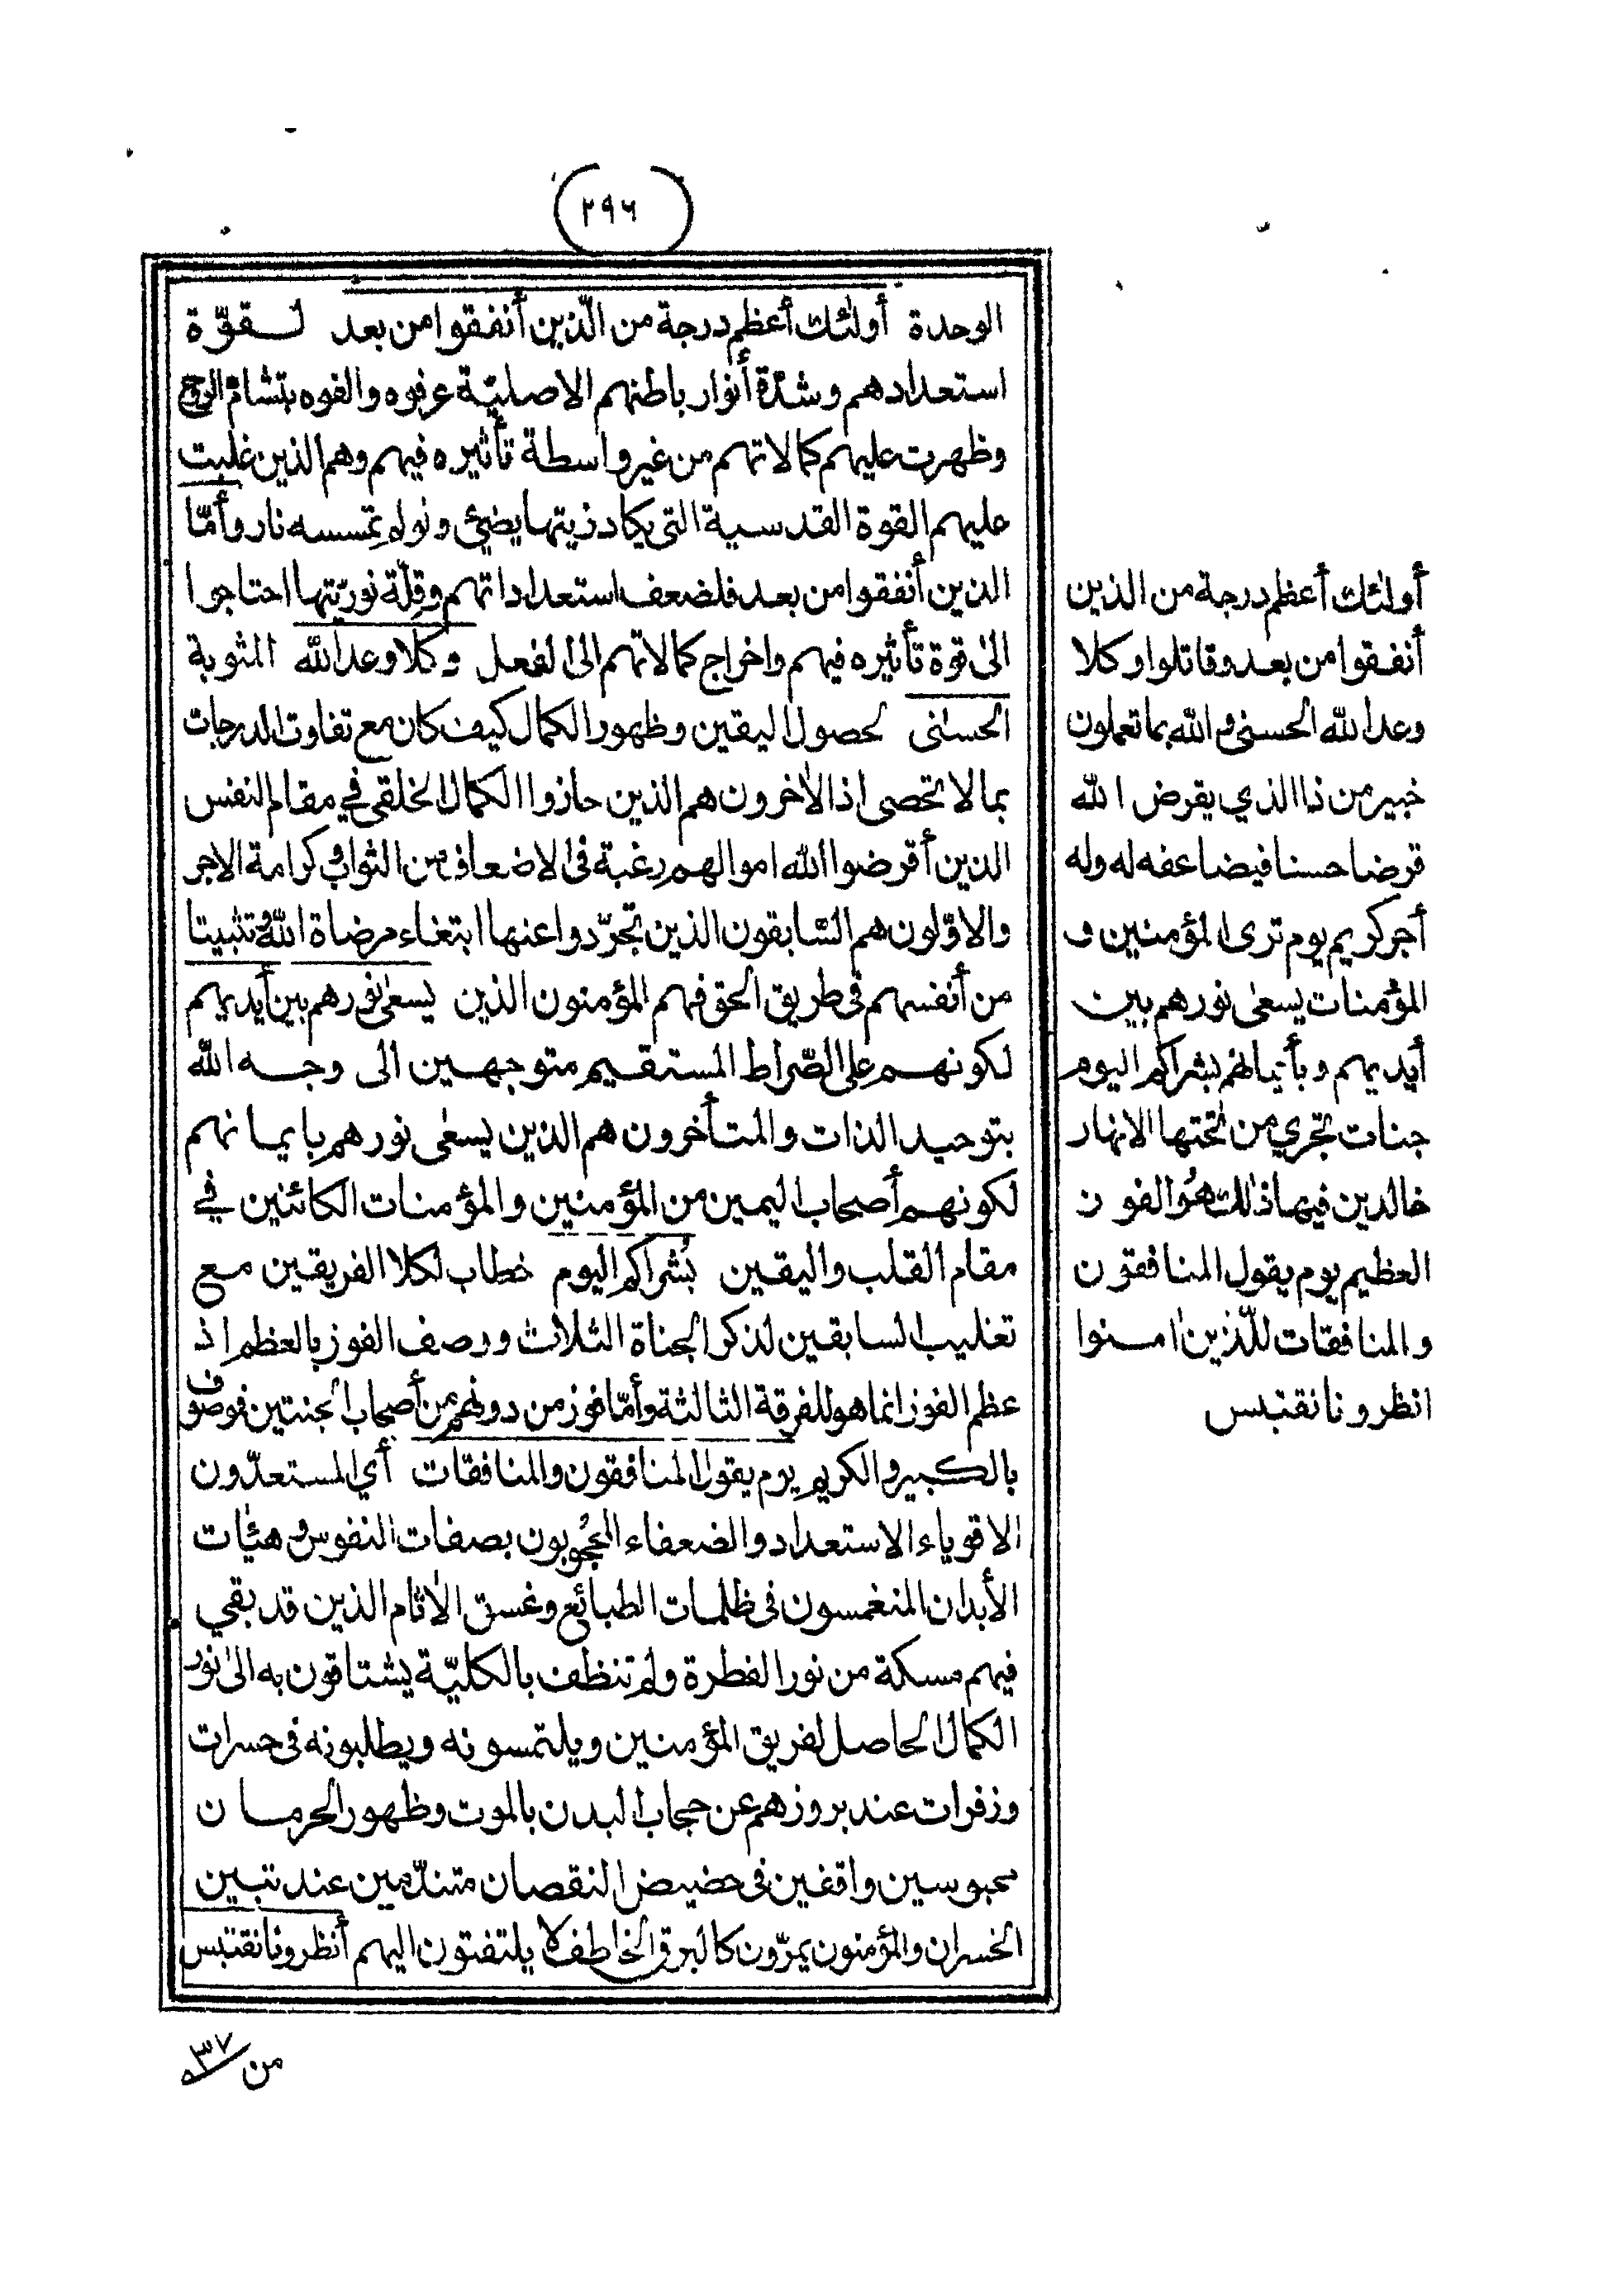 ٢٩٦
الوحدة أولئك أعظم درجة من الّذين أنفقوا من بعد لقوّة
استعدادهم وشدّة أنوار باطنهم الاصليّة عرفوه والفوه بتشامّ الروح
وظهرت عليهم كمالاتهم من غير واسطة تأثيره فيهم وهم الذين غلبت
عليهم القوة القدسية التى يكاد زيتها يضئ ولو لم تمسسه نار وأمّا
الذين أنفقوا من بعد فلضعف استعداداتهم وقلّة نوريّتها احتاجوا
الىٰ قوة تأثيره فيهم واخراج كمالاتهم الى الفعل وكلا وعد الله المثوبة
الحسنى لحصول اليقين وظهور الكمال كيف كان مع تفاوت الدرجات
بما لا تحصى اذ الاٰخرون هم الذين حازوا الكمال الخلقى في مقام النفس
الذين أقرضوا الله اموالهم رغبة فى الاضعاف من الثواب وكرامة الاجر
والاوّلون هم السّابقون الذين تجرّدوا عنها ابتغاء مرضاة الله وتثبيتا
من أنفسهم فى طريق الحق فهم المؤمنون الذين يسعىٰ نورهم بين أيديهم
لكونهم على الصّراط المستقيم متوجهين الى وجه الله
بتوحيد الذات والمتأخرون هم الذين يسعى نورهم بايمانهم
لكونهم أصحاب اليمين من المؤمنين والمؤمنات الكائنين في
مقام القلب واليقين بُشراكم اليوم خطاب لكلا الفريقين مع
تغليب السابقين لذكر الجناة الثلاث ووصف الفوز بالعظم اذ
عظم الفوز انما هو للفرقة الثالثة وأمّا فوز من دونهم من أصحاب الجنتين فوصف
بالكبير والكريم يوم يقول المنافقون والمنافقات أي المستعدّون
الاقوياء الاستعداد والضعفاء المحجوبون بصفات النفوس وهيٰات
الأبدان المنغمسون فى ظلمات الطبائع وغسق الاٰثام الذين قد بقي
فيهم مسكة من نور الفطرة ولم تنظف بالكليّة يشتاقون به الىٰ نور
الكمال الحاصل لفريق المؤمنين ويلتمسونه ويطلبونه فى حسرات
وزفرات عند بروزهم عن حجاب البدن بالموت وظهور الحرمان
محبوسين واقفين فى حضيض النقصان متندّمين عند تبين
الخسران والمؤمنون يمرّون كالبرق الخاطف لا يلتفتون اليهم أنظرونا نقتبس
أولئك أعظم درجة من الذين
أنفقوا من بعد وقاتلوا وكلا
وعد الله الحسنى والله بما تعملون
خبير من ذا الذي يقرض الله
قرضا حسنا فيضاعفه له وله
أجر كريم يوم ترى المؤمنين و
المؤمنات يسعى نورهم بين
أيديهم وبأيمانهم بشراكم اليوم
جنات تجري من تحتها الانهار
خالدين فيها ذلك هُو الفوز
العظيم يوم يقول المنافقون
والمنافقات للّذين اٰمنوا
انظرونا نقتبس
من
٣٧